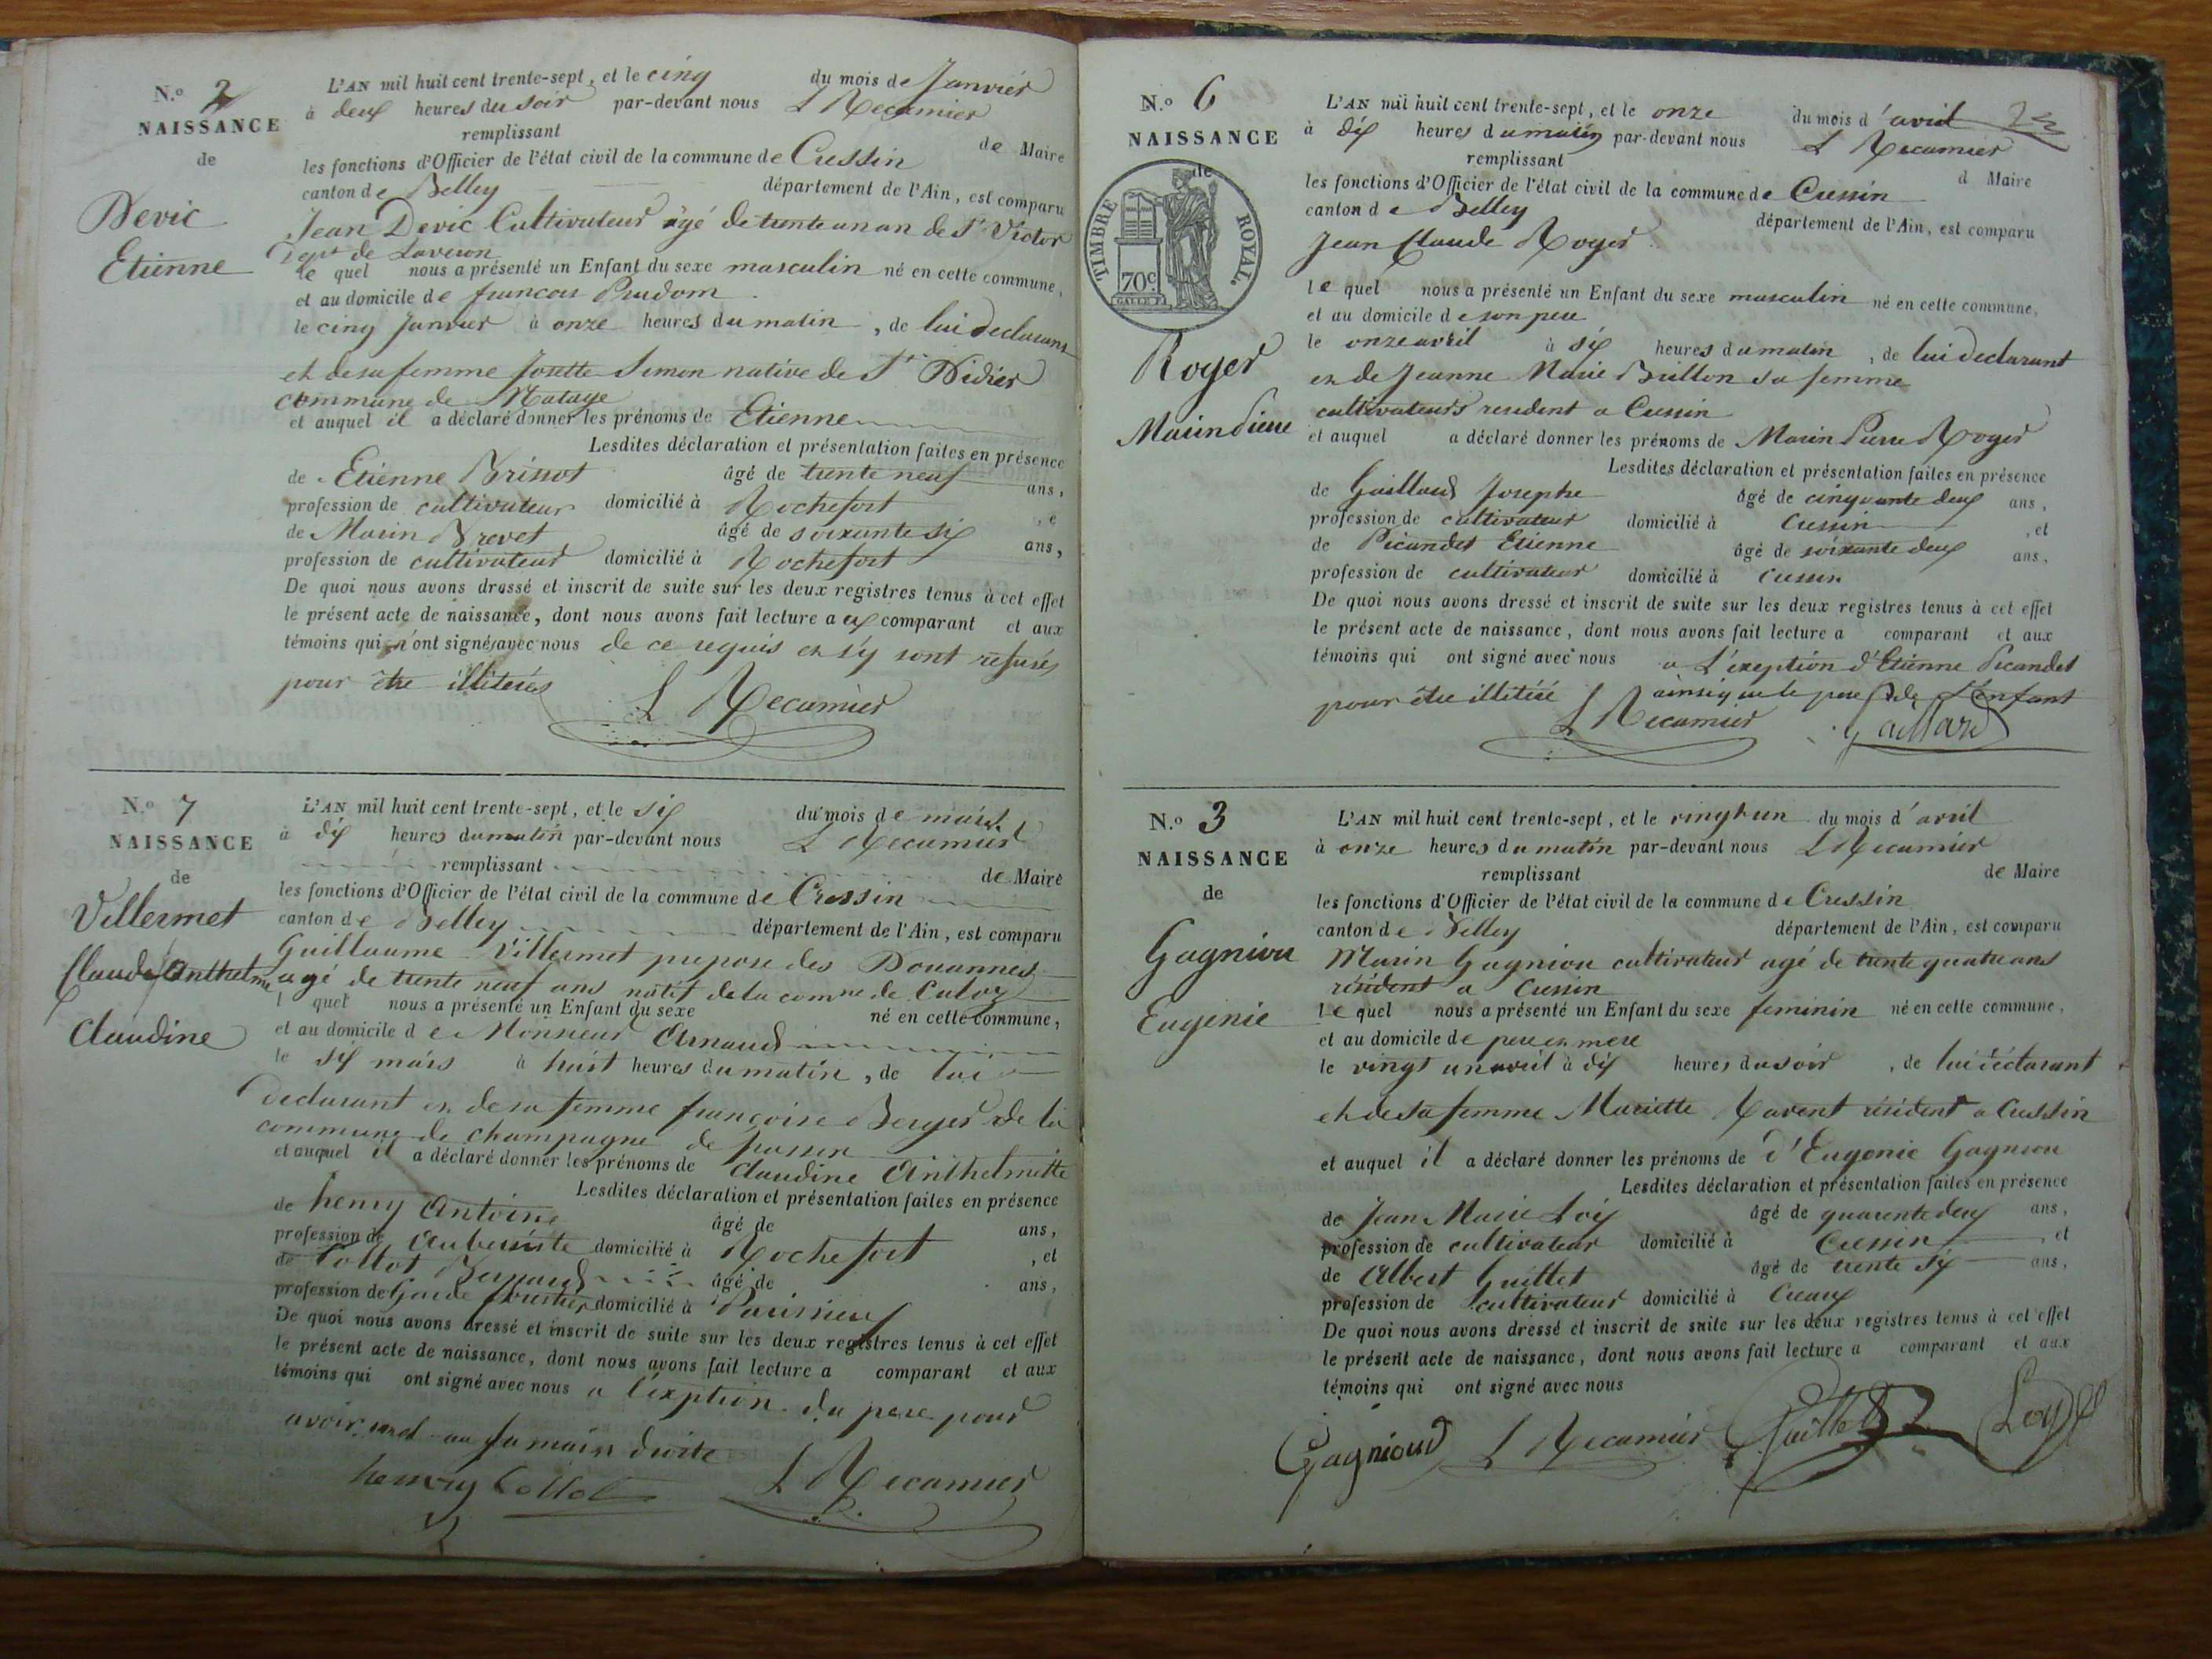 N.o 2
NAISSANCE
de
Devic
Etienne
L'AN mil huit cent trente-sept, et le cinq du mois de Janvier
à deux heures du soir par-devant nous L Recamier
remplissant de Maire
les fonctions d'Officier de l'état civil de la commune de Cressin
canton de Belley département de l'Ain, est comparu
Jean Devic Cultivateur agé de trente un an de St Victor
Dept de Laveron
le quel nous a présenté un Enfant du sexe masculin né en cette commune,
et au domicile de francois Prudom
le cinq Janvier à onze heures du matin, de lui declarant
et de sa femme Josette Simon native de St Didier
commune de
et auquel il a déclaré donner les prénoms de Etienne
Lesdites déclaration et présentation faites en présence
de Etienne Brissot âgé de trente neuf ans,
profession de cultivateur domicilié à Rochefort, e
de Marin Brevet âgé de soixante six ans,
profession de cultivateur domicilié à Rochefort
De quoi nous avons dressé et inscrit de suite sur les deux registres tenus à cet effet
le présent acte de naissance, dont nous avons fait lecture a ux comparant et aux
témoins qui n'ont signés avec nous de ce requis et s'y sont refusés
pour être illiterés
L Recamier
N.o 7
NAISSANCE
de
Villermet
Claude Anthelme
Claudine
L'AN mil huit cent trente-sept, et le six du mois de mars
à dix heures du matin par-devant nous L Recamier
remplissant de Maire
les fonctions d'Officier de l'état civil de la commune de Cressin
canton de Belley département de l'Ain, est comparu
Guillaume Villermet prepose des Douannes
agé de trente neuf ans natif de la comne de Culoz
l quel nous a présenté un Enfant du sexe né en cette commune,
et au domicile de Monsieur Arnaud
le six mars à huit heures du matin, de lui
declarant et de sa femme françoise Berger de la
commune de champagne de
et auquel il a déclaré donner les prénoms de Claudine Anthelmette
Lesdites déclaration et présentation faites en présence
de henry Antoine âgé de ans,
profession de Auberiste domicilié à Rochefort, et
de Collot Bernard âgé de ans,
profession de Garde forestier domicilié à Parissieu
De quoi nous avons dressé et inscrit de suite sur les deux registres tenus à cet effet
le présent acte de naissance, dont nous avons fait lecture a comparant et aux
témoins qui ont signé avec nous a l'exption du pere pour
avoir mal au sa main droite
henry Collot L Recamier
N.o 6
NAISSANCE
de
TIMBRE ROYAL.
70c
Roger
Marin Pierre
L'AN mil huit cent trente-sept, et le onze du mois d'avril
à dix heures du matin par-devant nous L Recamier
remplissant d Maire
les fonctions d'Officier de l'état civil de la commune de Cressin
canton de Belley département de l'Ain, est comparu
Jean Claude Roger
le quel nous a présenté un Enfant du sexe masculin né en cette commune,
et au domicile de son pere
le onze avril à six heures du matin, de lui declarant
et de Jeanne Marie Brillon sa femme
cultivateurs resident a Cressin
et auquel a déclaré donner les prénoms de Marin Pierre Roger
Lesdites déclaration et présentation faites en présence
de Gaillard Josephe âgé de cinquante deux ans,
profession de cultivateur domicilié à Cressin, et
de Picandet Etienne âgé de soixante deux ans,
profession de cultivateur domicilié à Cressin
De quoi nous avons dressé et inscrit de suite sur les deux registres tenus à cet effet
le présent acte de naissance, dont nous avons fait lecture a comparant et aux
témoins qui ont signé avec nous a L'exeption d'Etienne Picandet
pour être illitéré ainsi que le pere de l'enfant
L Recamier Gaillard
N.o 3
NAISSANCE
de
Gagniou
Eugenie
L'AN mil huit cent trente-sept, et le vingt un du mois d'avril
à onze heures du matin par-devant nous L Recamier
remplissant de Maire
les fonctions d'Officier de l'état civil de la commune de Cressin
canton de Belley département de l'Ain, est comparu
Marin Gagniou cultivateur agé de trente quatre ans
résident a Cressin
Le quel nous a présenté un Enfant du sexe feminin né en cette commune,
et au domicile de pere et mere
le vingt un avril à dix heures du soir, de lui déclarant
et de sa femme Mariette Ravent résident a Cressin
et auquel il a déclaré donner les prénoms de d'Eugenie Gagniou
Lesdites déclaration et présentation faites en présence
de Jean Marie Loy âgé de quarente deux ans,
profession de cultivateur domicilié à Cressin, et
de Albert Guillet âgé de trente six ans,
profession de cultivateur domicilié à
De quoi nous avons dressé et inscrit de suite sur les deux registres tenus à cet effet
le présent acte de naissance, dont nous avons fait lecture a comparant et aux
témoins qui ont signé avec nous
Gagnioud L Recamier Guillet Loy